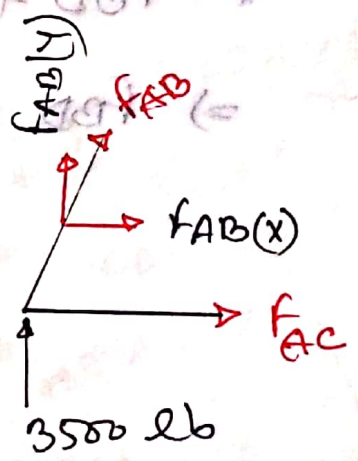 fAB(Y)
fAB
fAB(X)
fAC
3500 lb